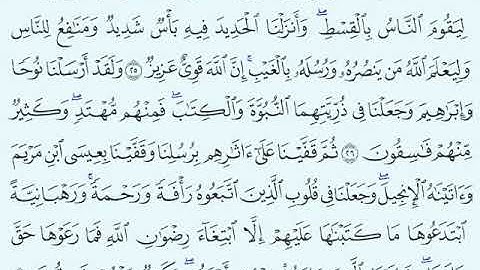 لِيَقُومَ ٱلنَّاسُ بِٱلْقِسْطِۖ وَأَنزَلْنَا ٱلْحَدِيدَ فِيهِ بَأْسٌ شَدِيدٌ وَمَنَٰفِعُ لِلنَّاسِ
وَلِيَعْلَمَ ٱللَّهُ مَن يَنصُرُهُۥ وَرُسُلَهُۥ بِٱلْغَيْبِۚ إِنَّ ٱللَّهَ قَوِىٌّ عَزِيزٌ ٢٥ وَلَقَدْ أَرْسَلْنَا نُوحًا
وَإِبْرَٰهِيمَ وَجَعَلْنَا فِى ذُرِّيَّتِهِمَا ٱلنُّبُوَّةَ وَٱلْكِتَٰبَۖ فَمِنْهُم مُّهْتَدٍۖ وَكَثِيرٌ
مِّنْهُمْ فَٰسِقُونَ ٢٦ ثُمَّ قَفَّيْنَا عَلَىٰٓ ءَاثَٰرِهِم بِرُسُلِنَا وَقَفَّيْنَا بِعِيسَى ٱبْنِ مَرْيَمَ
وَءَاتَيْنَٰهُ ٱلْإِنجِيلَۖ وَجَعَلْنَا فِى قُلُوبِ ٱلَّذِينَ ٱتَّبَعُوهُ رَأْفَةً وَرَحْمَةًۚ وَرَهْبَانِيَّةً
ٱبْتَدَعُوهَا مَا كَتَبْنَٰهَا عَلَيْهِمْ إِلَّا ٱبْتِغَآءَ رِضْوَٰنِ ٱللَّهِ فَمَا رَعَوْهَا حَقَّ